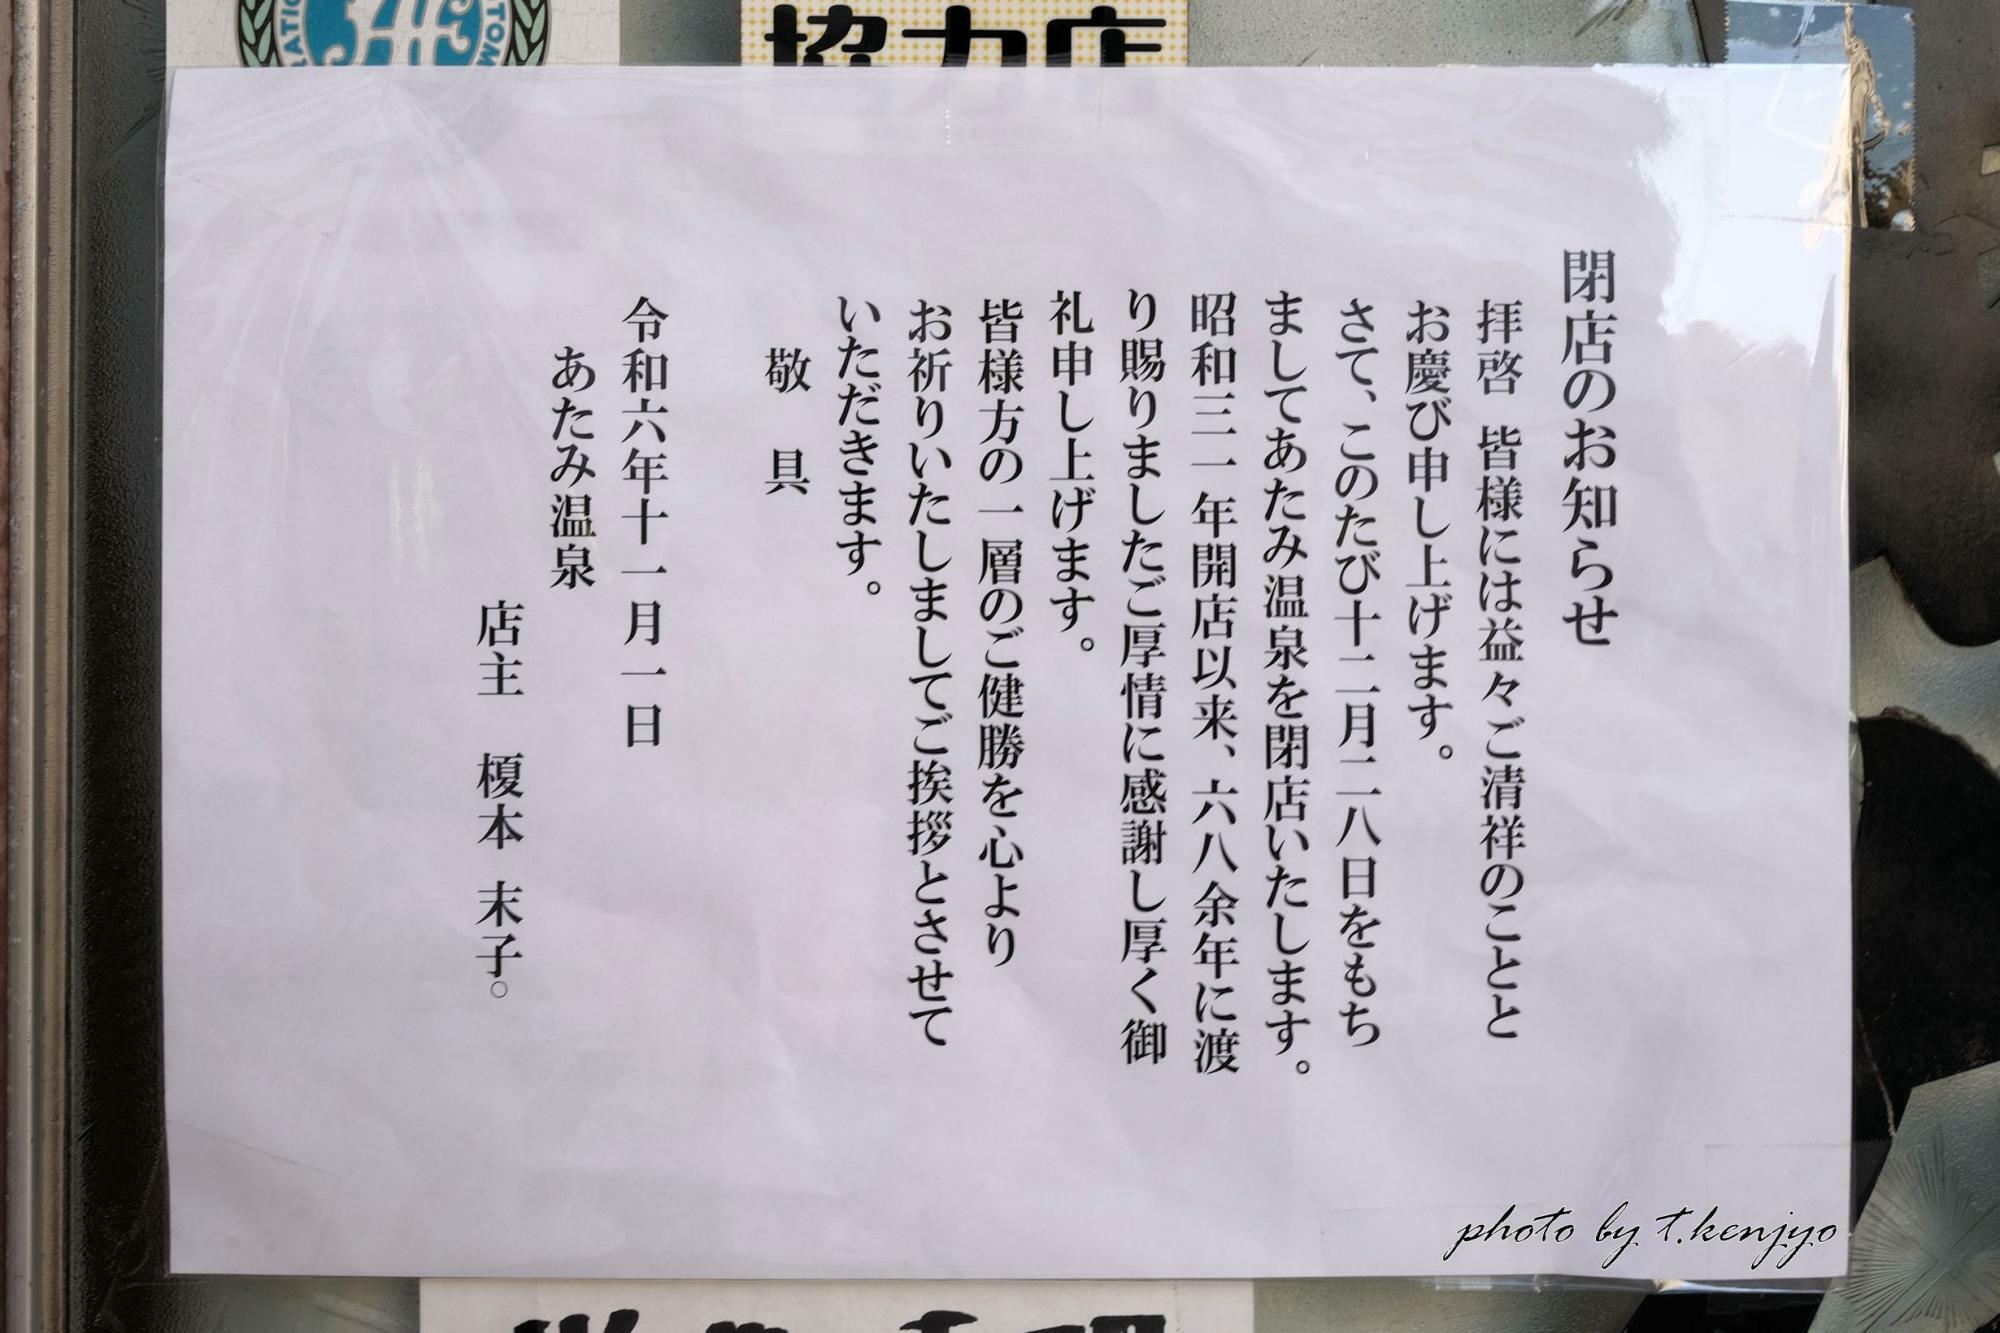 協力店
閉店のお知らせ
拝啓　皆様には益々ご清祥のことと
お慶び申し上げます。
さて、このたび十二月二八日をもち
ましてあたみ温泉を閉店いたします。
昭和三一年開店以来、六八余年に渡
り賜りましたご厚情に感謝し厚く御
礼申し上げます。
皆様方の一層のご健勝を心より
お祈りいたしましてご挨拶とさせて
いただきます。
敬　具
令和六年十一月一日
あたみ温泉
店主　榎本　末子。
photo by t.kenjyo